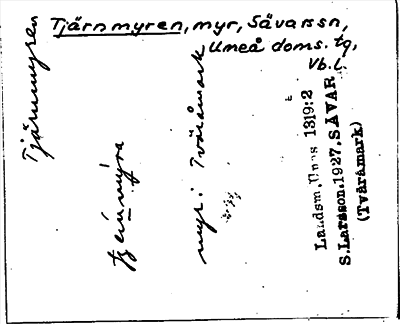 Tjärnmyren, myr, Sävarssn,
Umeå doms. tg,
Vb.l.
Tjärnmyren
myr i Tväråmark
Landsm. Upps 1319:2
S.Larsson.1927.SÄVAR
(Tväråmark)